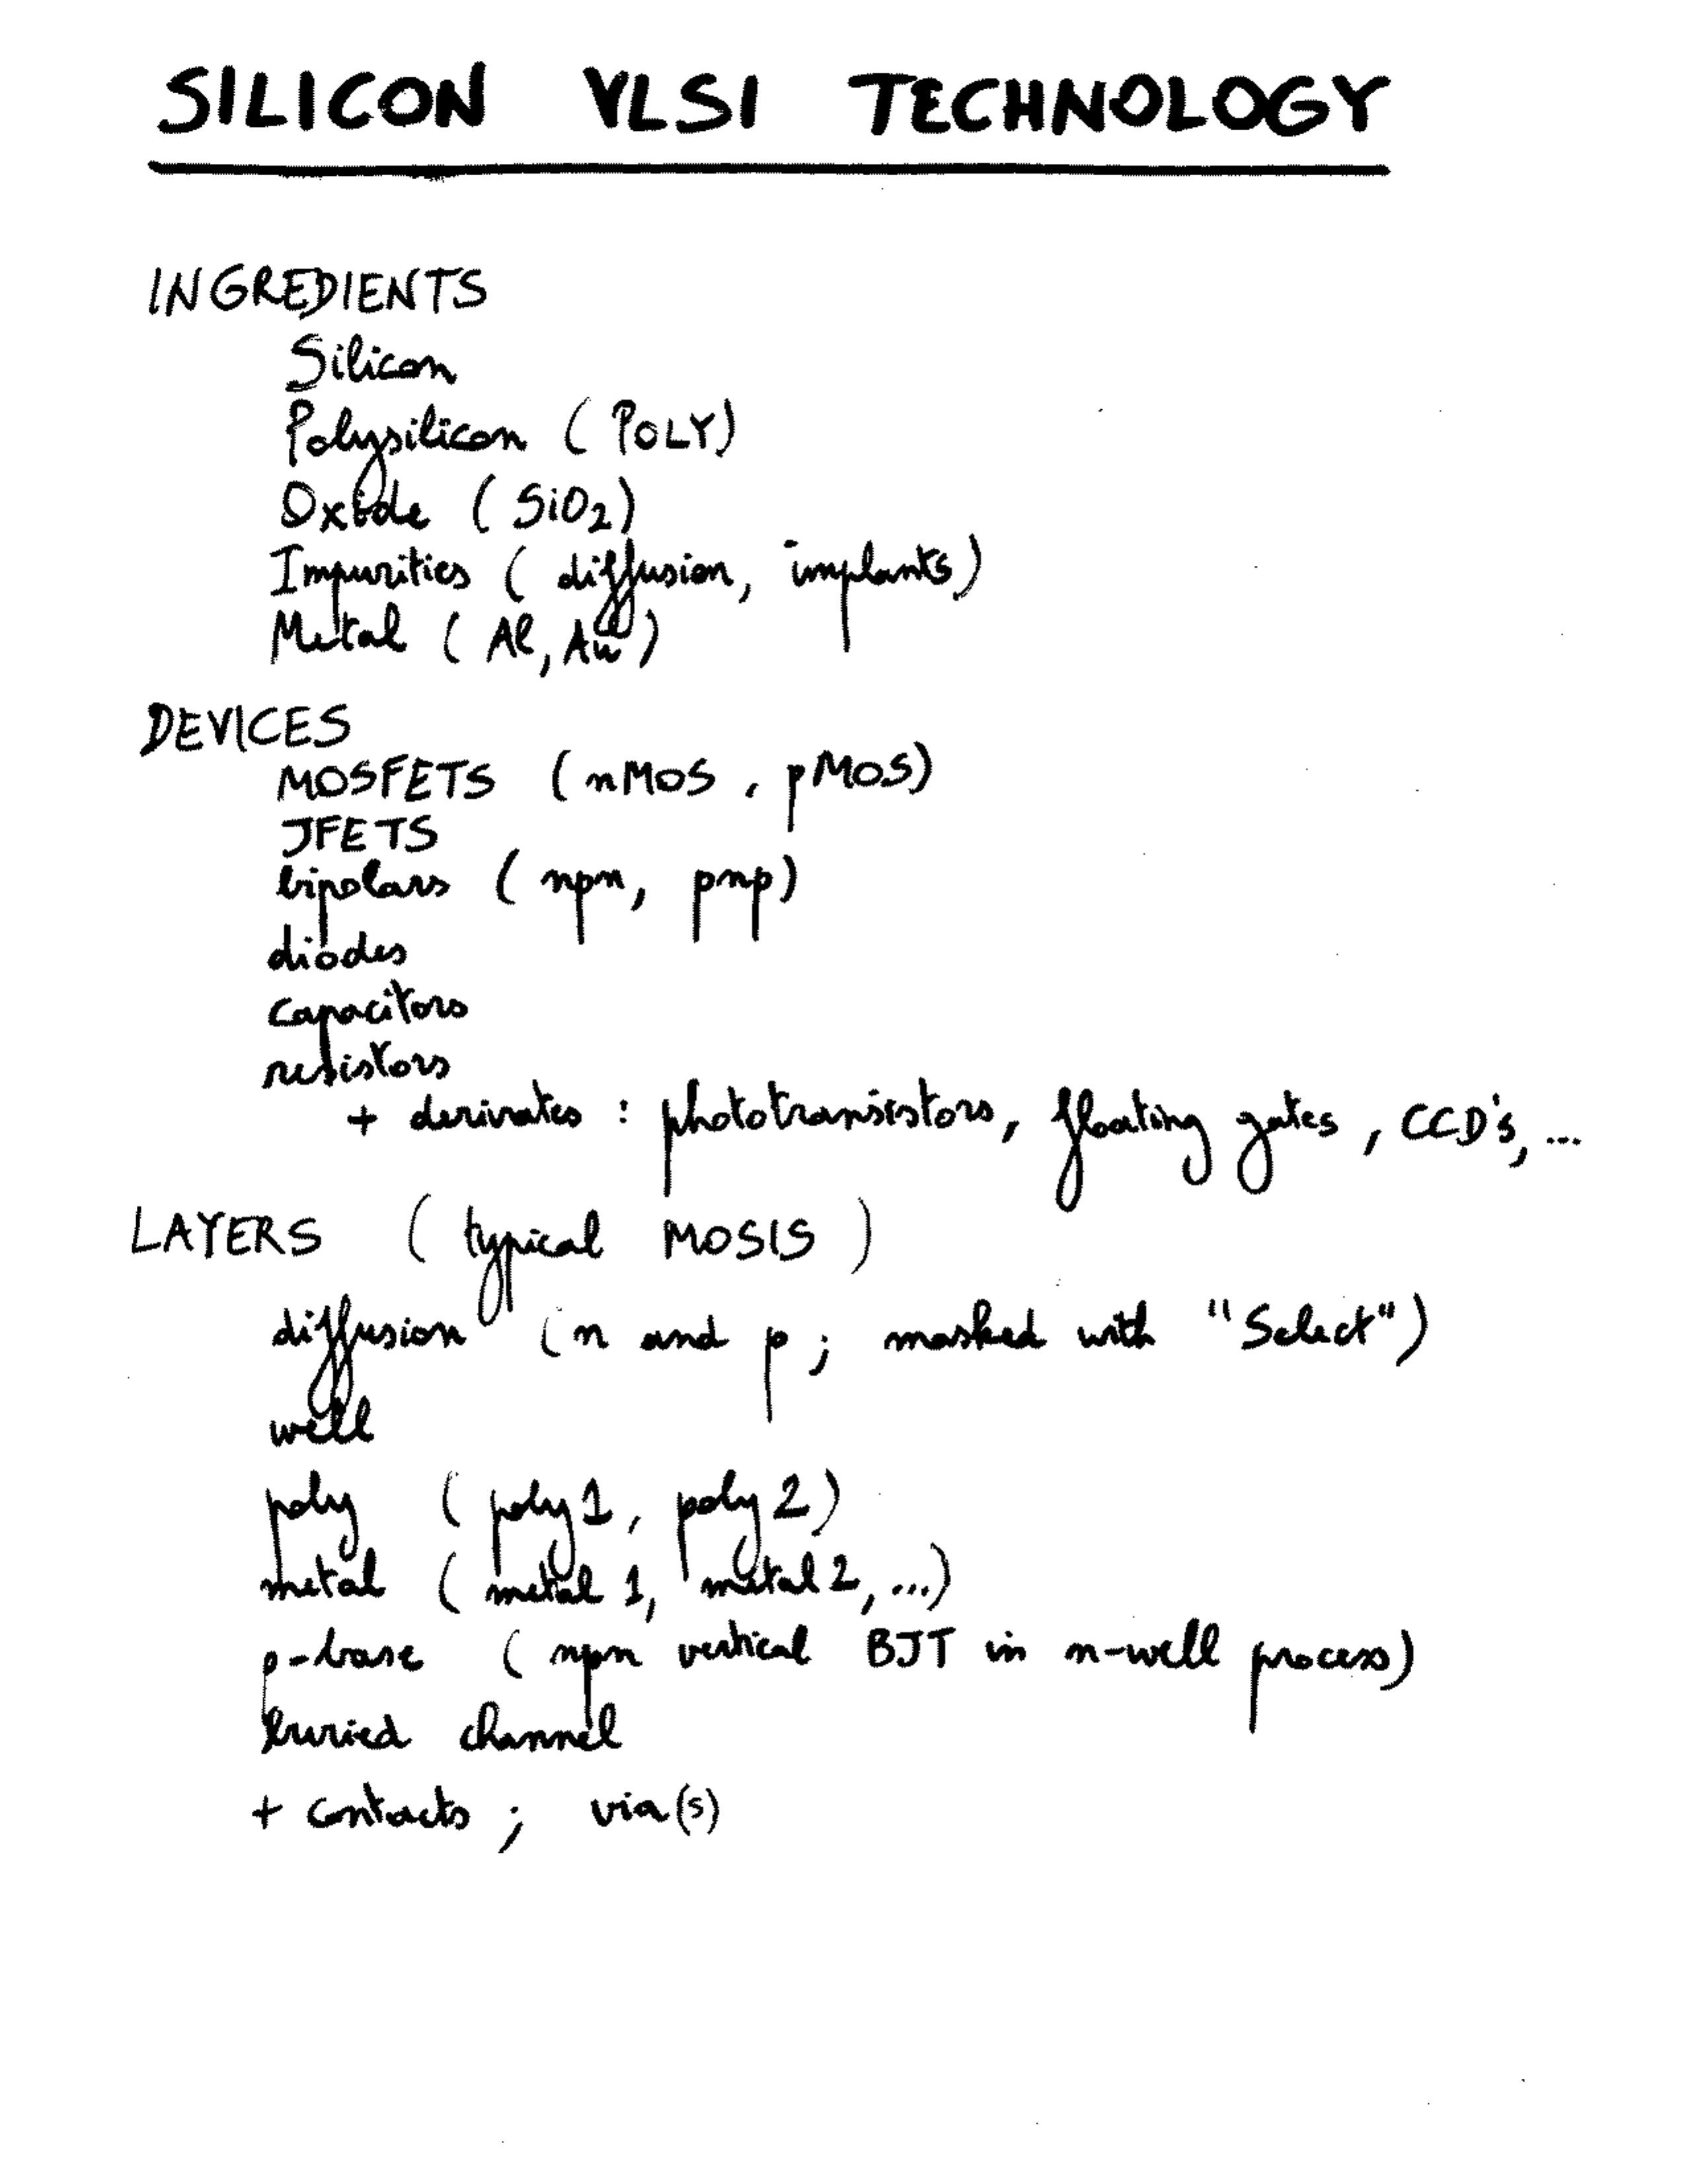 SILICON VLSI TECHNOLOGY
INGREDIENTS
Silicon
Polysilicon (POLY)
Oxide (SiO2)
Impurities (diffusion, implants)
Metal (Al, Au)
DEVICES
MOSFETS (nMOS, pMOS)
JFETS
bipolars (npn, pnp)
diodes
capacitors
resistors
+ derivates : phototransistors, floating gates, CCD's, ...
LAYERS (typical MOSIS)
diffusion (n and p; masked with "Select")
well
poly (poly 1, poly 2)
metal (metal 1, metal 2, ...)
p-base (npn vertical BJT in n-well process)
buried channel
+ contacts ; via(s)